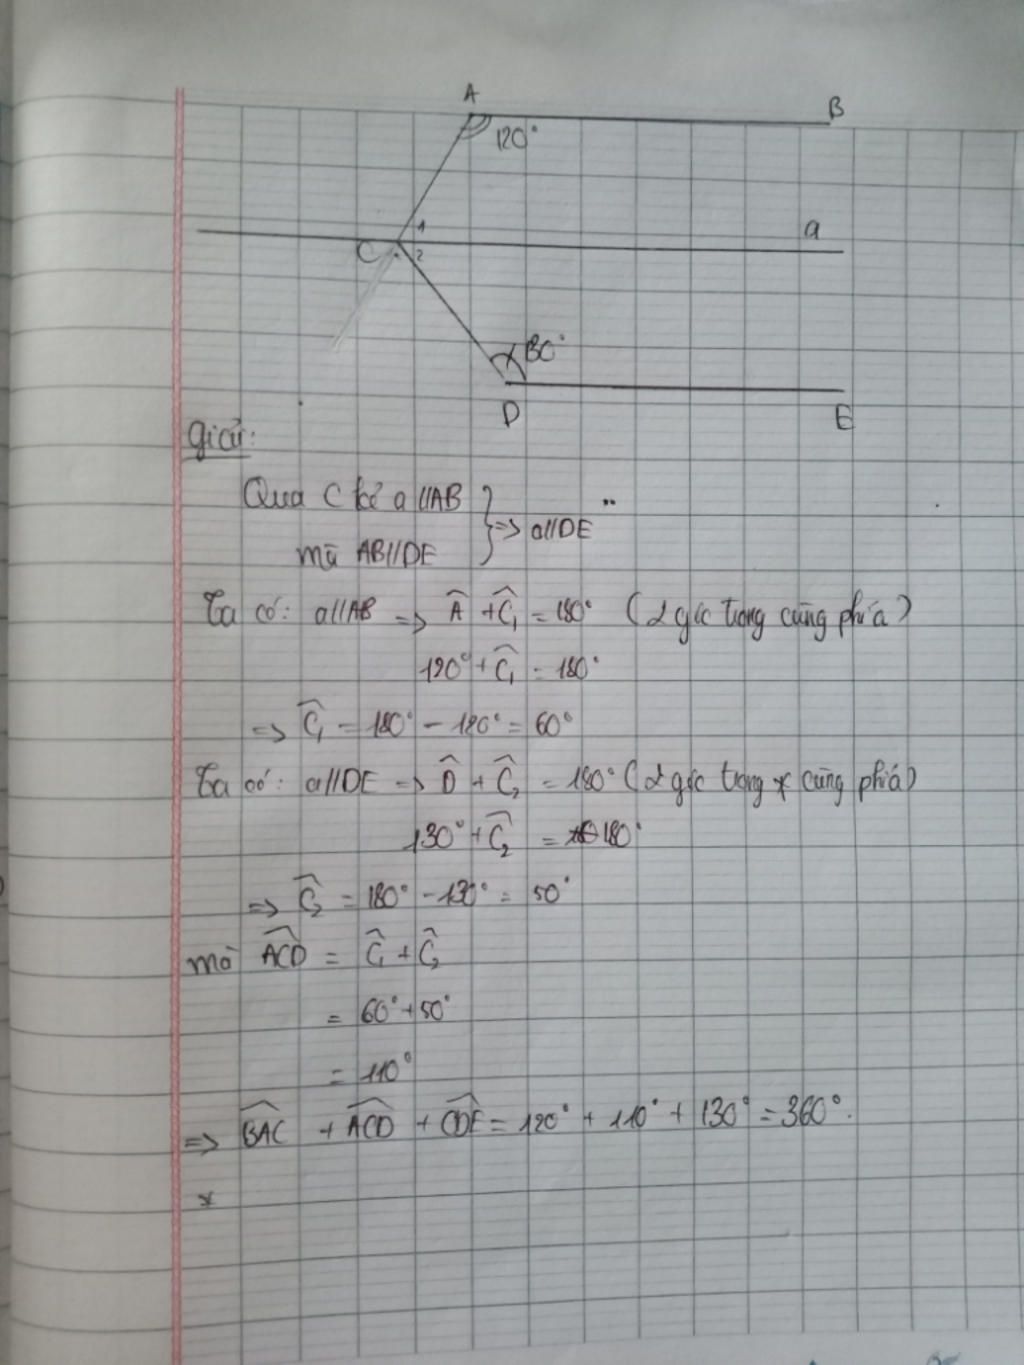 A B
120°
1 a
C 2
130°
D E
Giải:
Qua C kẻ a//AB
=> a//DE
mà AB//DE
Ta có: a//AB => Â + Ĉ₁ = 180° (2 góc trong cùng phía)
120° + Ĉ₁ = 180°
=> Ĉ₁ = 180° - 120° = 60°
Ta có: a//DE => D̂ + Ĉ₂ = 180° (2 góc trong cùng phía)
130° + Ĉ₂ = 180°
=> Ĉ₂ = 180° - 130° = 50°
mà ACD = Ĉ₁ + Ĉ₂
= 60° + 50°
= 110°
=> BAC + ACD + CDE = 120° + 110° + 130° = 360°.